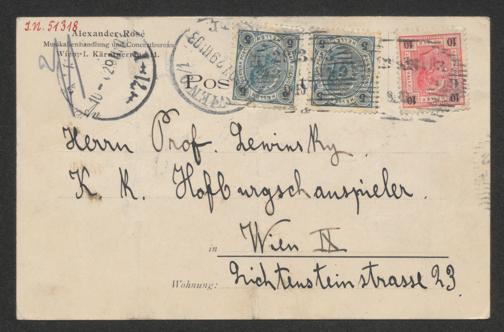 I.N. 51318.
Alexander Rosé
Musikalienhandlung und Concertbureau
Wien, I. Kärntnerring
POS
5 5
5 5
10 10
10 10
Herrn Prof. Lewinsky.
K. K. Hofburgschauspieler.
in Wien IX
Wohnung: Lichtensteinstrasse 23.